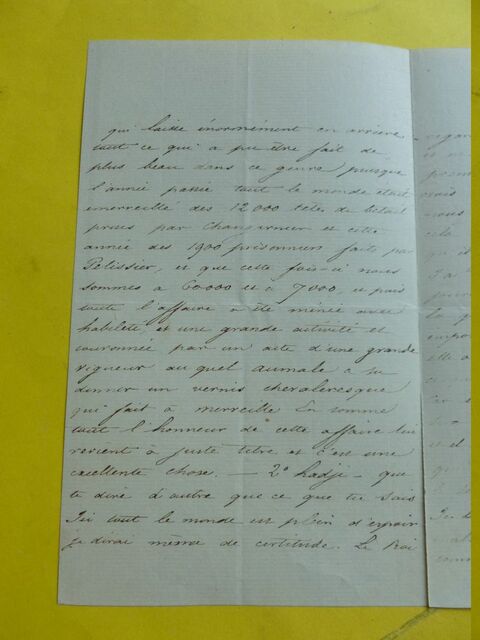 qui laisse énormément en arrière
tout ce qui a pu être fait de
plus beau dans ce genre puisque
l'année passée tout le monde était
émerveillé des 12 000 têtes de bétail
prises par Changarnier et cette
année des 1900 prisonniers faits par
Pelissier, et que cette fois-ci nous
sommes à 60.000 et à 7000, et puis
toute l'affaire a été menée avec
habileté et une grande activité et
couronnée par un acte d'une grande
vigueur au quel aumale a su
donner un vernis chevaleresque
qui fait à merveille En somme
tout l'honneur de cette affaire lui
revient à juste titre et c'est une
excellente chose. — 2° hadji - que
te dire d'autre que ce que tu sais
Ici tout le monde est plein d'espoir
je dirai même de certitude. Le Roi